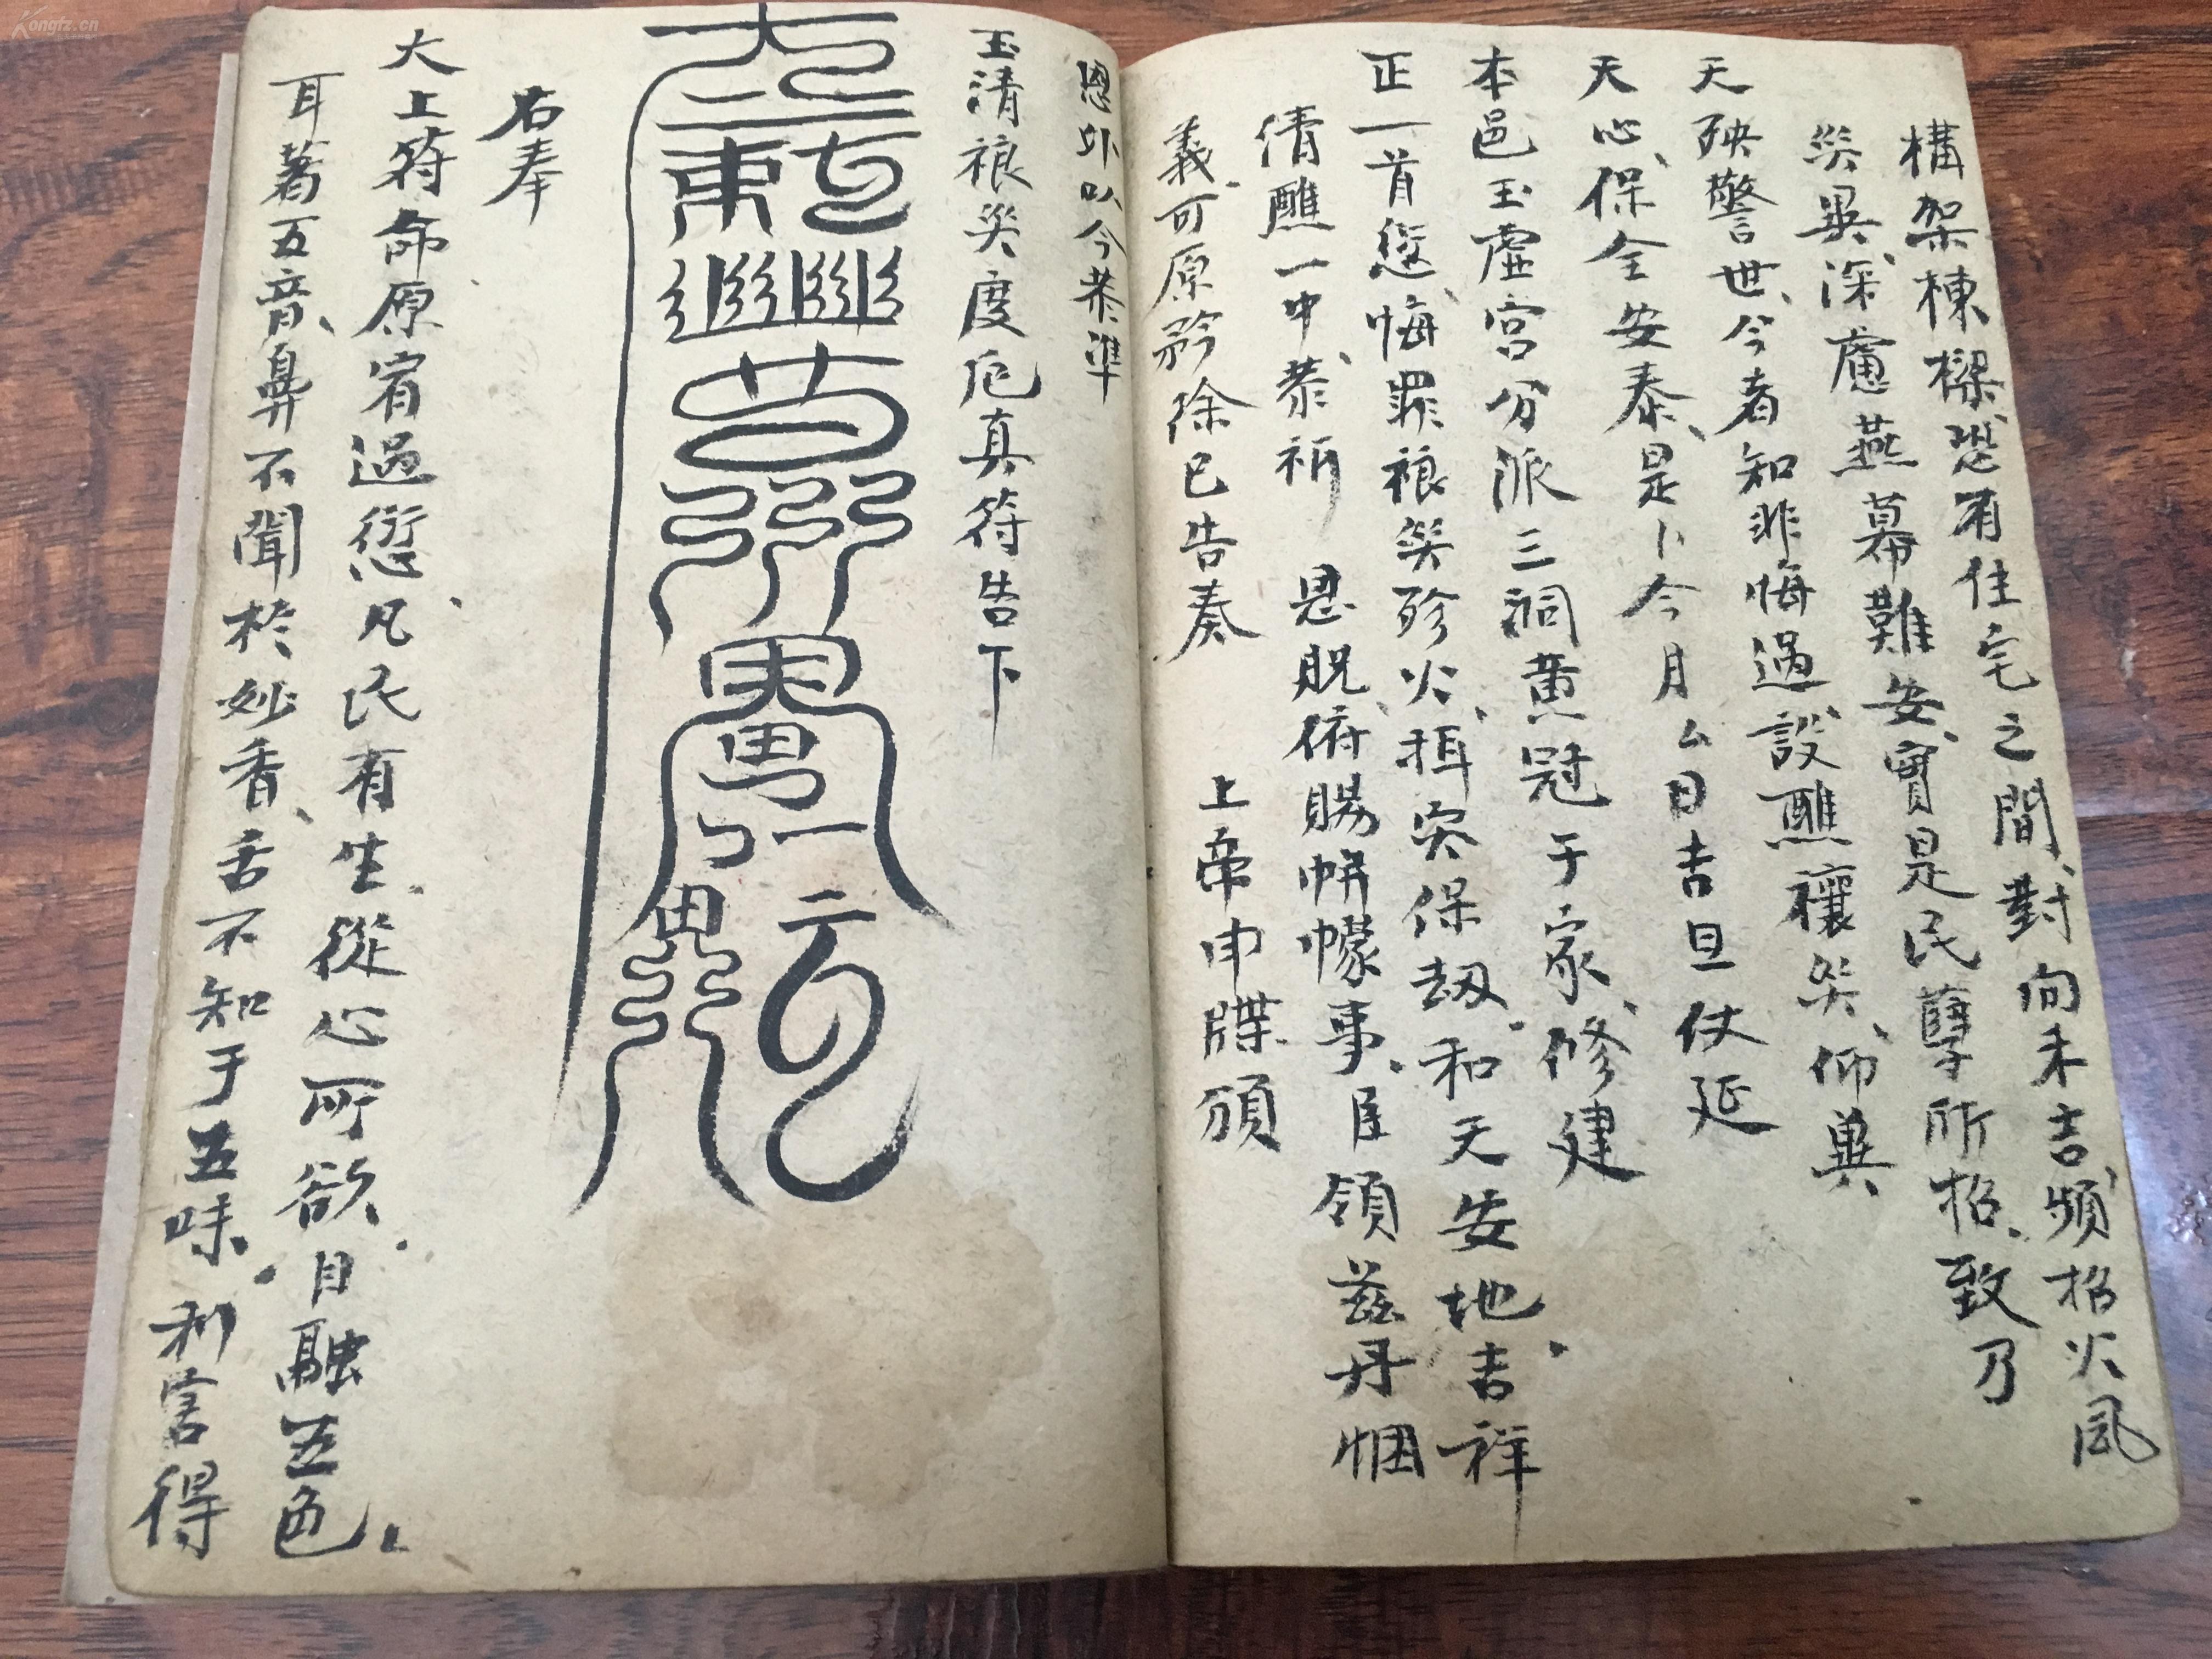 構架棟樑、恐有住宅之間、對向未吉、頻招火風
災異、深慮燕幕難安、實是民孽所招、致乃
天殃警世、今者知非悔過、設醮禳災、仰冀
天心、保全安泰、是卜今月厶日吉旦仗延
本邑玉虛宮分派三洞黃冠于家、修建
正一首愆、悔罪禳災殄火、弭灾保劫、和天安地吉祥
清醮一中、恭祈 恩貺俯賜帡幪事、臣領茲丹悃
義可原矜除已告奏 上帝申牒頒
恩外以今恭準
玉清禳災度厄真符告下
右奉
太上符命原宥過愆、凡民有生、從心所欲、目融五色、
耳著五音、鼻不聞於妙香、舌不知于五味、利害得
Kongfz.cn